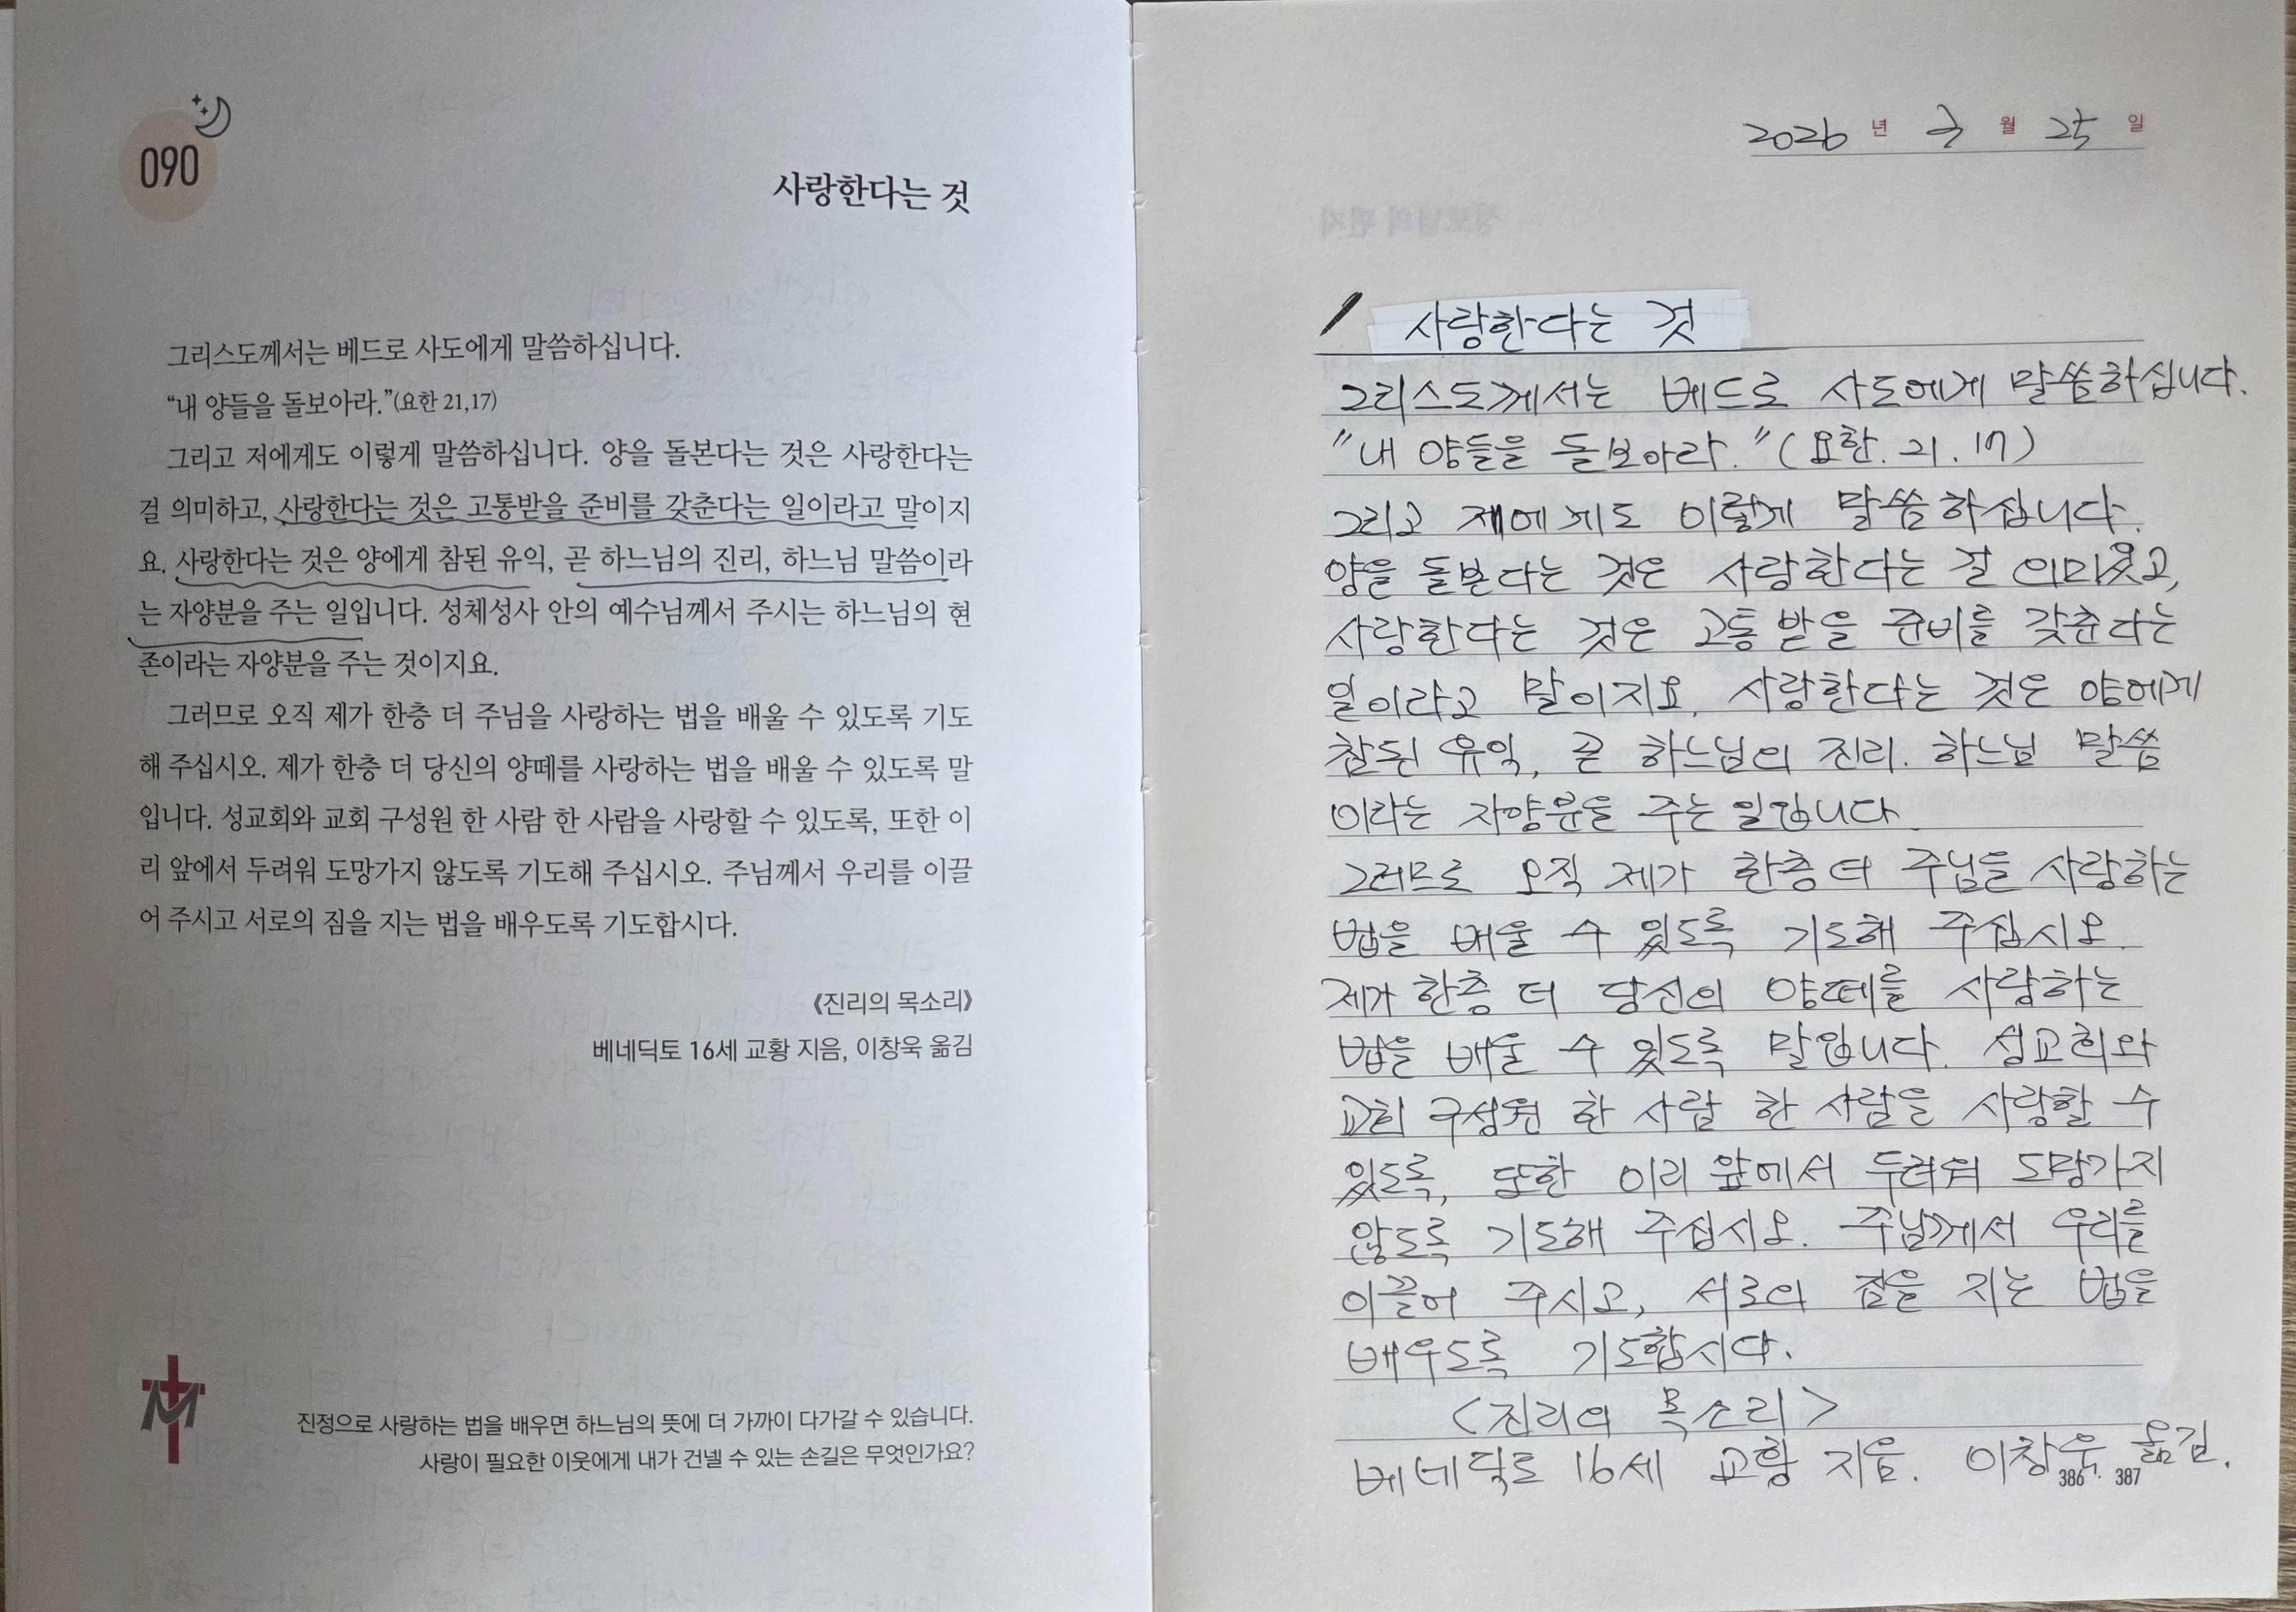 090
사랑한다는 것
그리스도께서는 베드로 사도에게 말씀하십니다.
“내 양들을 돌보아라.”(요한 21,17)
그리고 저에게도 이렇게 말씀하십니다. 양을 돌본다는 것은 사랑한다는
걸 의미하고, 사랑한다는 것은 고통받을 준비를 갖춘다는 일이라고 말이지
요. 사랑한다는 것은 양에게 참된 유익, 곧 하느님의 진리, 하느님 말씀이라
는 자양분을 주는 일입니다. 성체성사 안의 예수님께서 주시는 하느님의 현
존이라는 자양분을 주는 것이지요.
그러므로 오직 제가 한층 더 주님을 사랑하는 법을 배울 수 있도록 기도
해 주십시오. 제가 한층 더 당신의 양떼를 사랑하는 법을 배울 수 있도록 말
입니다. 성교회와 교회 구성원 한 사람 한 사람을 사랑할 수 있도록, 또한 이
리 앞에서 두려워 도망가지 않도록 기도해 주십시오. 주님께서 우리를 이끌
어 주시고 서로의 짐을 지는 법을 배우도록 기도합시다.
《진리의 목소리》
베네딕토 16세 교황 지음, 이창욱 옮김
M
진정으로 사랑하는 법을 배우면 하느님의 뜻에 더 가까이 다가갈 수 있습니다.
사랑이 필요한 이웃에게 내가 건넬 수 있는 손길은 무엇인가요?
2026 년 3 월 25 일
사랑한다는 것
그리스도께서는 베드로 사도에게 말씀하십니다.
"내 양들을 돌보아라."(요한. 21. 17)
그리고 제에게도 이렇게 말씀하십니다.
양을 돌본다는 것은 사랑한다는 걸 의미했고,
사랑한다는 것은 고통 받을 준비를 갖춘다는
일이라고 말이지요. 사랑한다는 것은 양에게
참된 유익, 곧 하느님의 진리. 하느님 말씀
이라는 자양분을 주는 일입니다.
그러므로 오직 제가 한층 더 주님을 사랑하는
법을 배울 수 있도록 기도해 주십시오.
제가 한층 더 당신의 양떼를 사랑하는
법을 배울 수 있도록 말입니다. 성교회와
교회 구성원 한 사람 한 사람을 사랑할 수
있도록, 또한 이리 앞에서 두려워 도망가지
않도록 기도해 주십시오. 주님께서 우리를
이끌어 주시고, 서로의 짐을 지는 법을
배우도록 기도합시다.
<진리의 목소리>
베네딕토 16세 교황 지음. 이창욱 옮김.
386 387